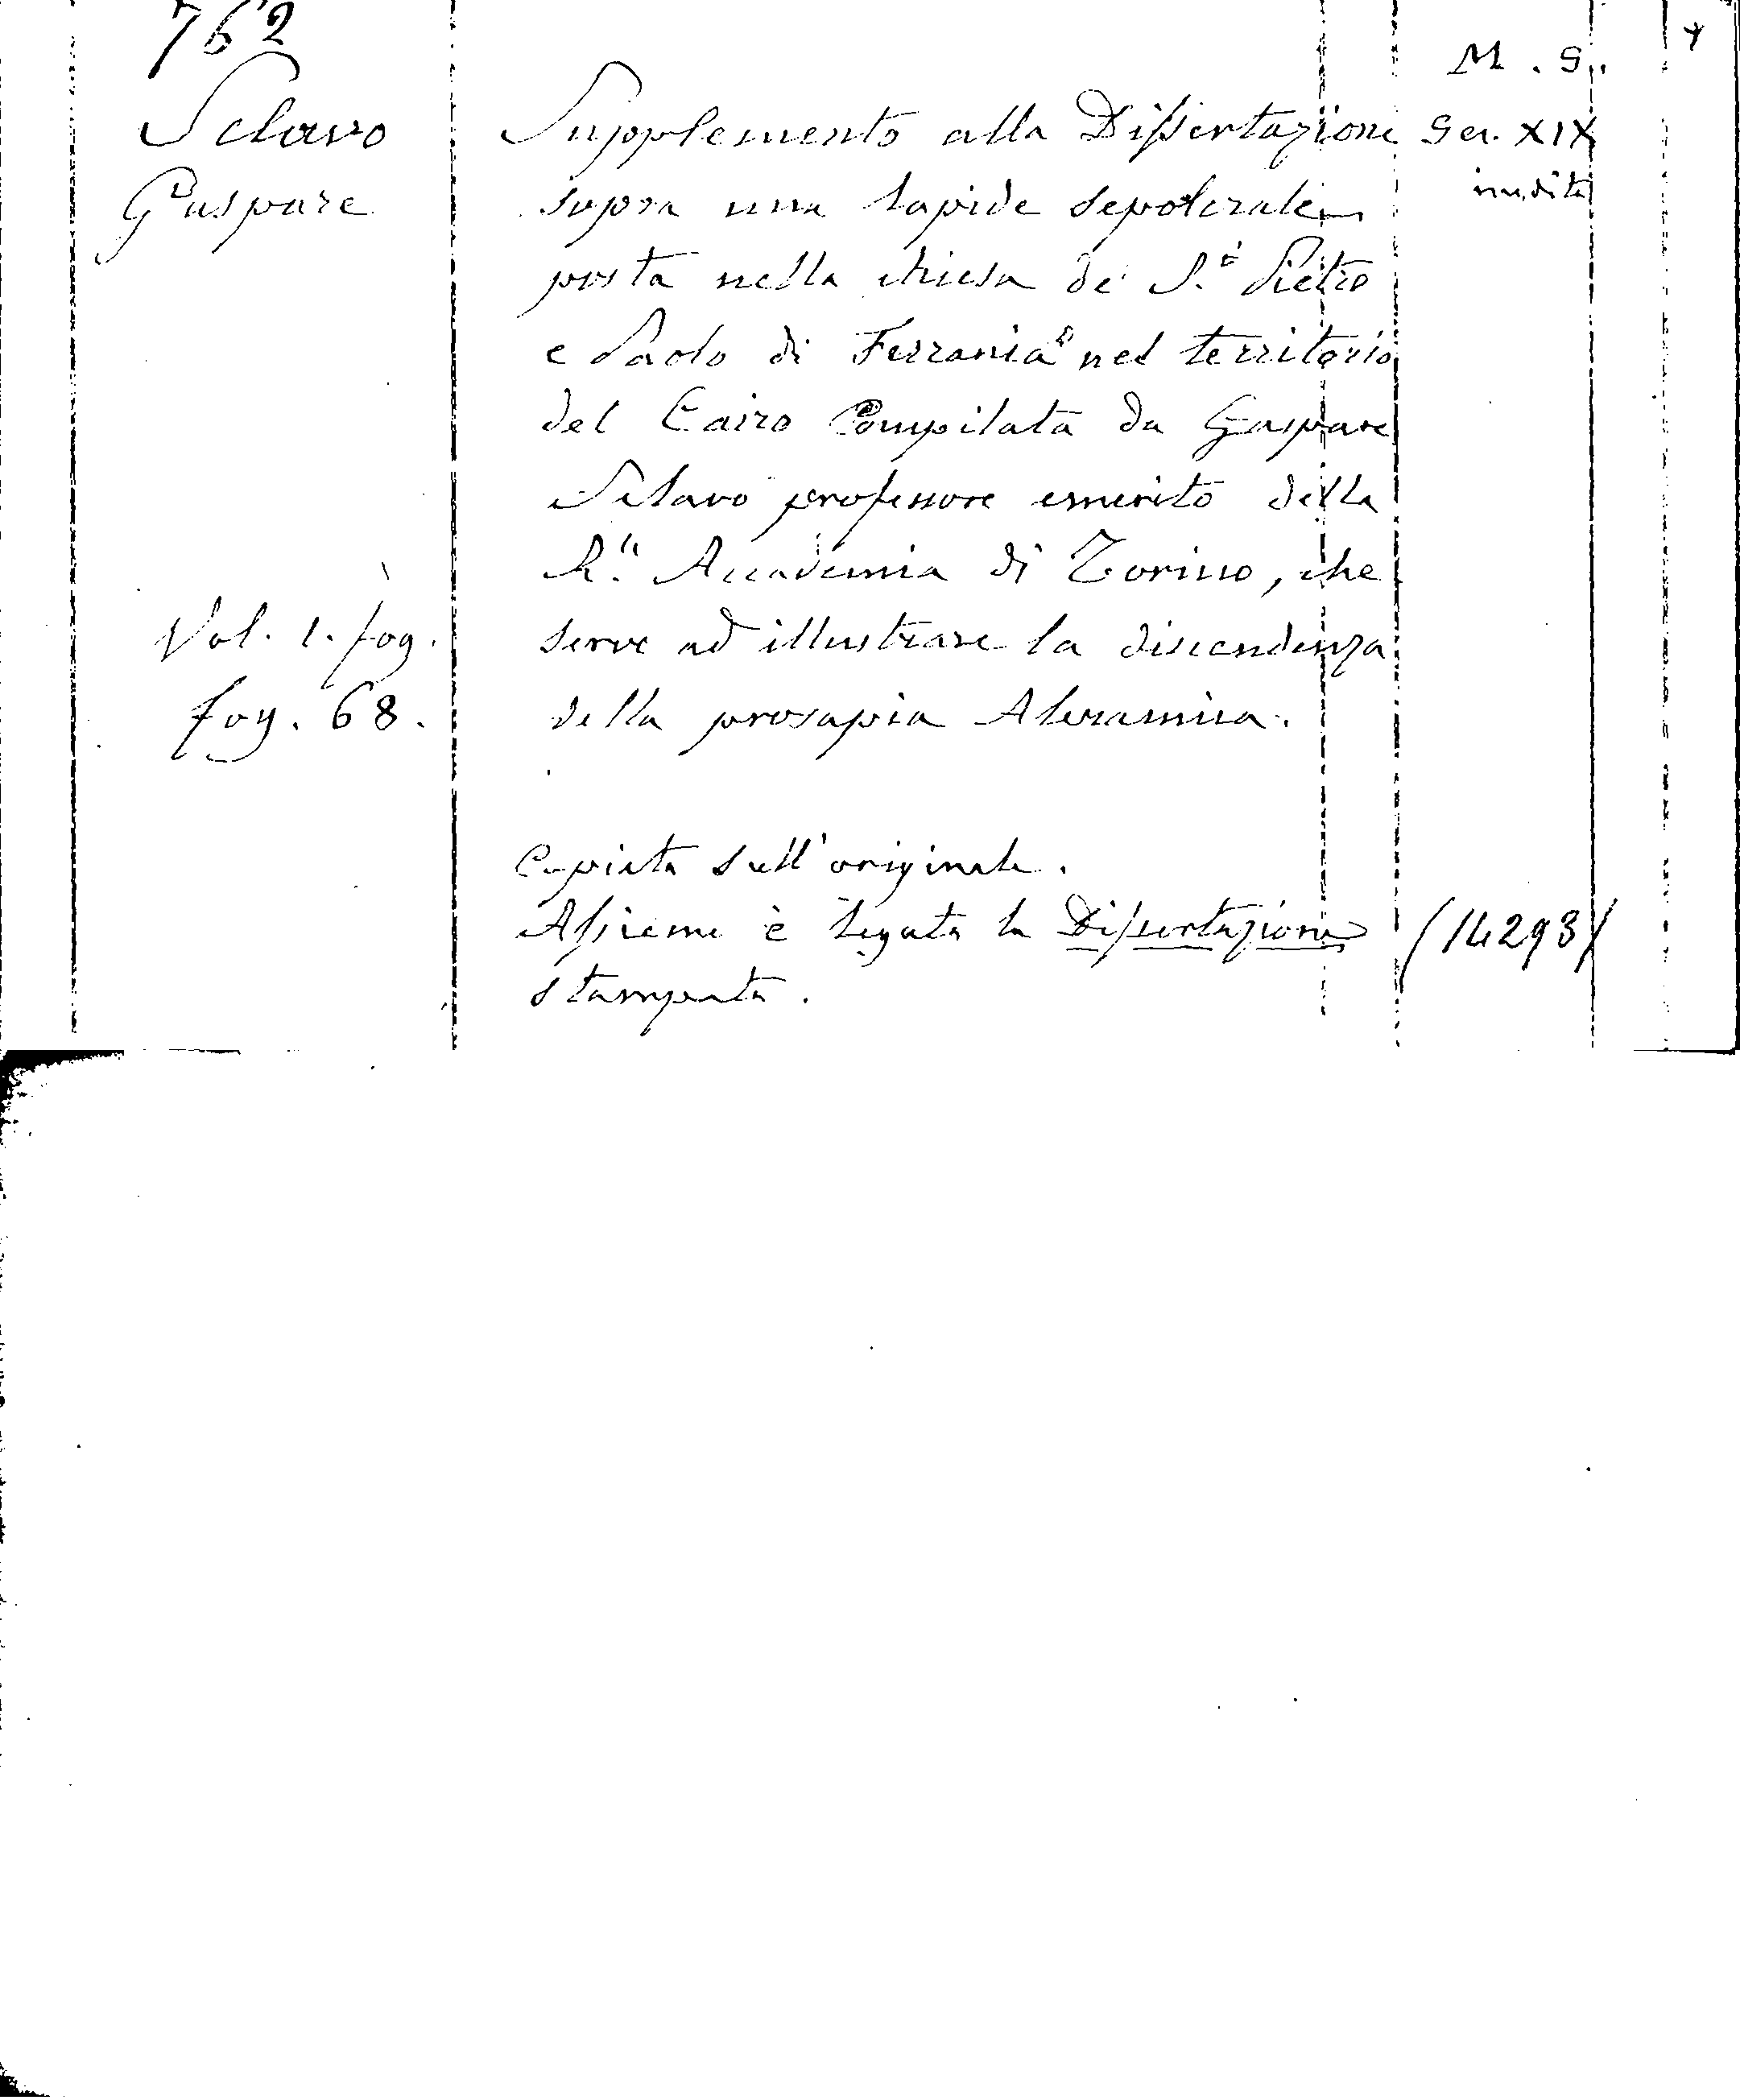 762
Sclavo
Gaspare
Vol. 1. fog.
fog. 68.
Supplemento alla Dissertazione
sopra una lapide sepolcrale
posta nella chiesa de' S.ti Pietro
e Paolo di Ferrania nel territorio
del Cairo Compilata da Gaspare
Sclavo professore emerito della
R.a Accademia di Torino, che
serve ad illustrare la discendenza
della prosapia Aleramica.
Copiata sull'originale.
Assieme è legata la Dissertazione
stampata.
M. S.
Sec. XIX
inedito
(14293)